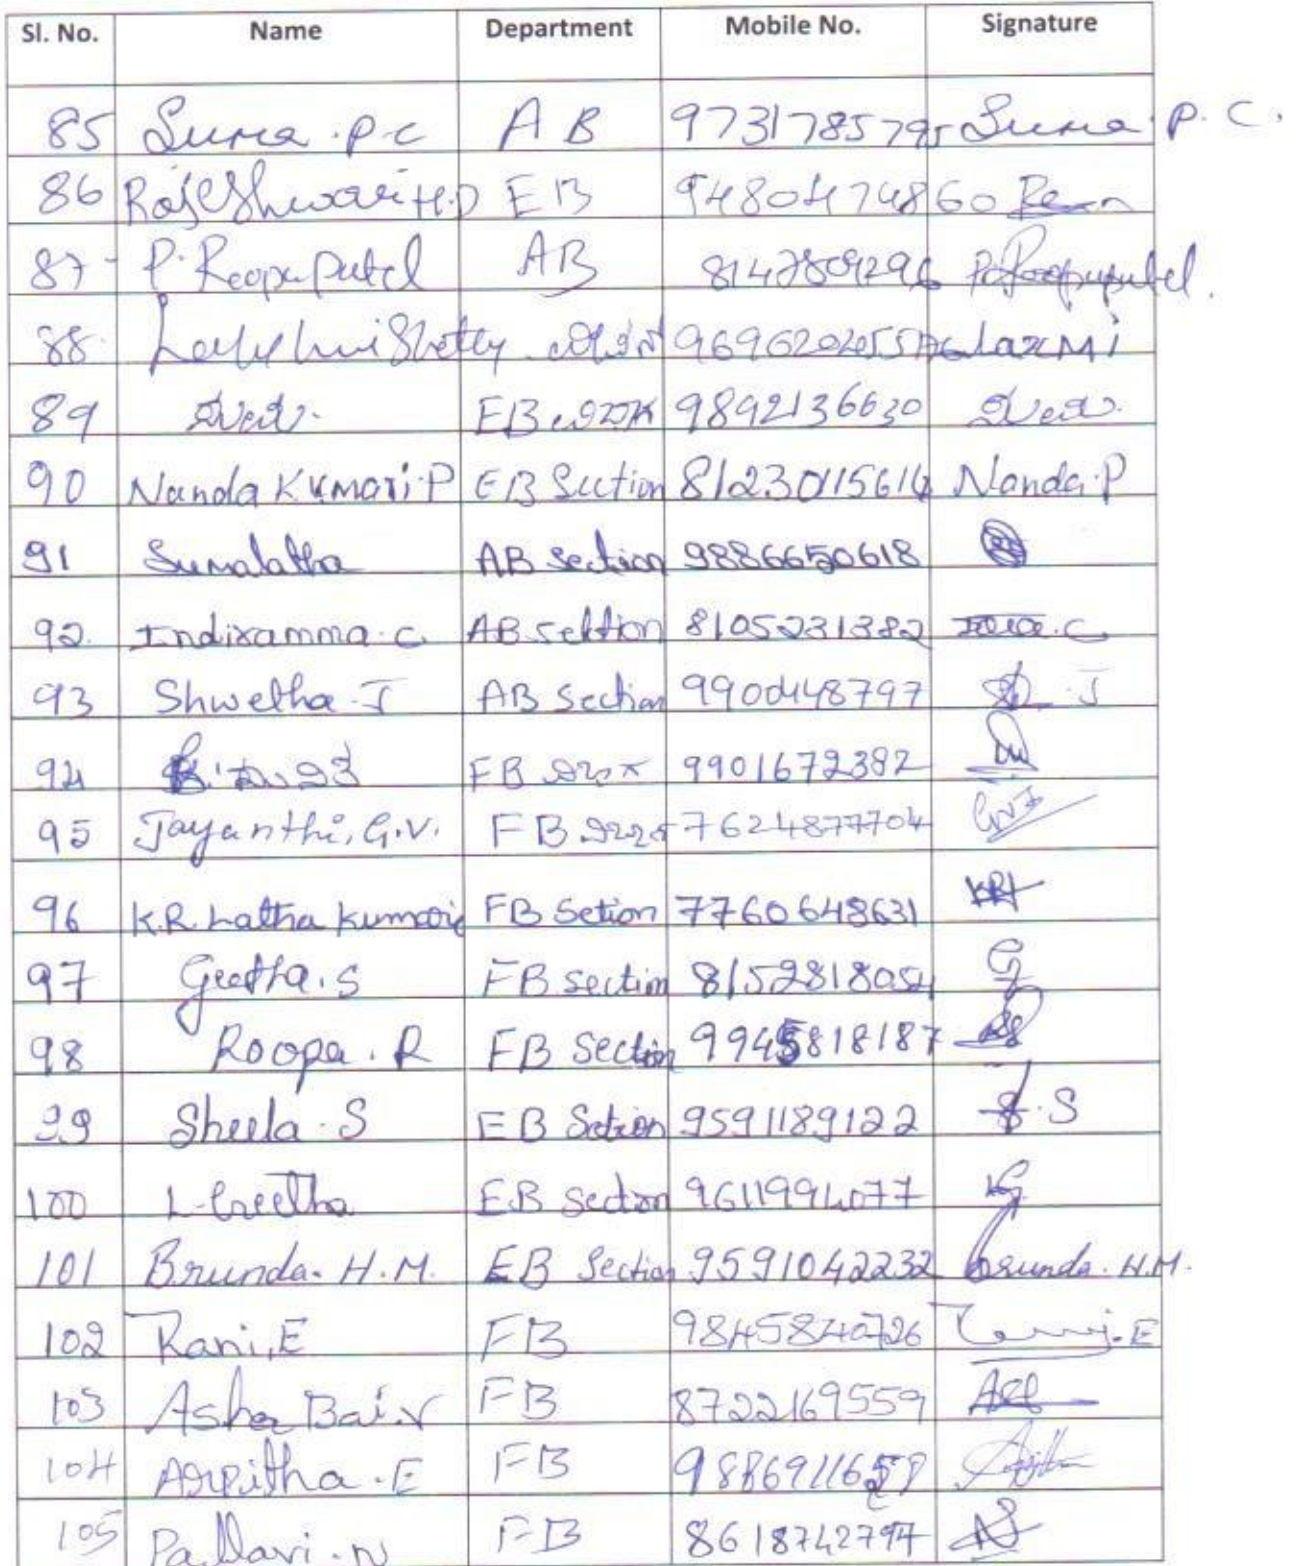 Sl. No. Name Department Mobile No. Signature
85 Suma .P.C A B 9731785795 Suma P. C.
86 Rajeshwari H.D EB 9480474860
87 P. Roopa Patel AB 8147809296 P. Roopa patel.
88 Shetty Laxmi
89 EB 9892136630
90 Nanda Kumari.P EB Section Nanda.P
91 Sumalatha AB Section 9886650618
92. Indiramma.C. AB section 8105231382
93 Shwetha.J AB Section 9900448797 J
94 FB 9901672382
95 Jayanthi, G.V. FB 7624877704 GVJ
96 K.R. Latha Kumari FB Setion 7760648631 KRL
97 Geetha.S FB section 8152818054 G
98 Roopa. R FB Section 9945818187
99 Sheela.S EB Section 9591189122 S
100 L. Geetha EB Section 9611994077 LG
101 Brunda. H.M. EB Section 9591042232 brunda. H.M.
102 Rani.E FB 9845840726 E
103 Asha Bai.V FB 8722169559
104 Arpitha.E FB
105 Pallavi.N FB 8618742794